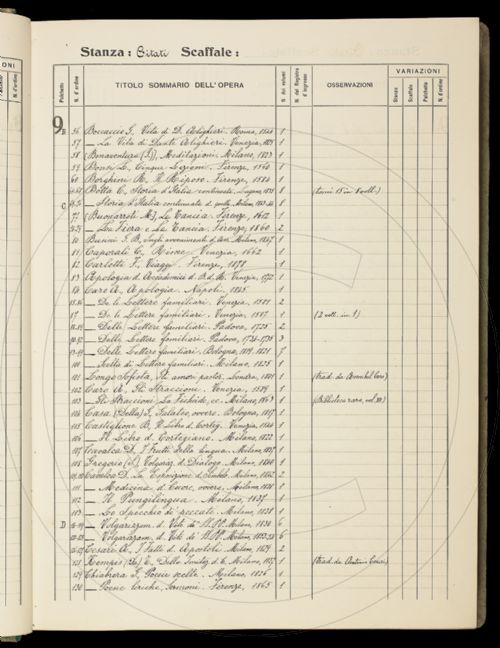 Stanza: Citati Scaffale:
VARIAZIONI
Palchetto N. d'ordine TITOLO SOMMARIO DELL'OPERA N. dei volumi N. del Registro d'ingresso OSSERVAZIONI Stanza Scaffale Palchetto N. d'ordine
9 B 56 Boccaccio G, Vita di D. Alighieri. Roma, 1544 1
57 — La Vita di Dante Alighieri. Venezia, 1
58 (Bonaventura (S)), Meditazioni. Milano, 1823 1
59 Lezioni. Firenze, 1560 1
60 Borghini R. Il Riposo. Firenze, 1584 1
Botta C, Storia d'Italia continuata. Lugano, 8 (tomi 15 in 8 voll.)
C — Storia d'Italia continuata d. quella, Milano, 8
(Buonarroti M), La Tancia. Firenze, 1612 1
— La Fiera e La Tancia. Firenze, 1860 2
80 avvenimenti d'Am. Milano, 1847 1
81 Caporali C, Rime. Venezia, 1662 1
82 Carletti F, Viaggi. Firenze, 1878 1
83 Apologia d. Accademici d. B. d. R. Venezia, 1
84 Caro A, Apologia. Napoli, 1
— De le Lettere familiari. Venezia, 1581 2
87 — De le Lettere familiari. Venezia, 1587 1 (2 voll. in 1)
— Delle Lettere familiari. Padova, 1725 2
— Delle Lettere familiari. Padova, 3
— Delle Lettere familiari. Bologna, 1819, 1821 7
100 — Scelta di Lettere familiari. Milano, 1825 1
101 Longo Sofista, Gli amori pastor. Londra, 1801 1 (trad. da Annibal Caro)
102 Caro A, Gli Straccioni. Venezia, 1589 1
103 — Gli Straccioni. La Ficheide, ec. Milano, 1863 1 (Biblioteca rara, vol. )
104 Casa (Della) G, Galateo, ovvero. Bologna, 1
105 Castiglione B, Il Libro d. Corteg. Venezia, 1544 1
106 — Il Libro d. Cortegiano. Milano, 1822 1
107 Cavalca D, I Frutti della lingua. Milano, 1837 1
108 Gregorio (s), Volgarizz. d. Dialogo. Milano, 1840 1
Cavalca D, La Esposizione d. Simbolo. Milano, 1842 2
111 — Medicina d. Cuore, ovvero. Milano, 1838 1
112 — Il Pungilingua. Milano, 1837 1
113 — Lo Specchio di peccati. Milano, 1838 1
D — Volgarizzam. d. Vite de' SS. PP. Milano, 1830 6
— Volgarizzam. d. Vite de' SS. PP. Milano, 6
Cesare A, I Fatti d. Apostoli. Milano, 1829 2
128 Kempis (Da) C. Della Imitaz. d. C. Milano, 1 (trad. da Antonio Cesari)
129 Chiabrera G, Poesie scelte. Milano, 1826 1
130 — Poesie liriche, Sermoni. Firenze, 1865 1